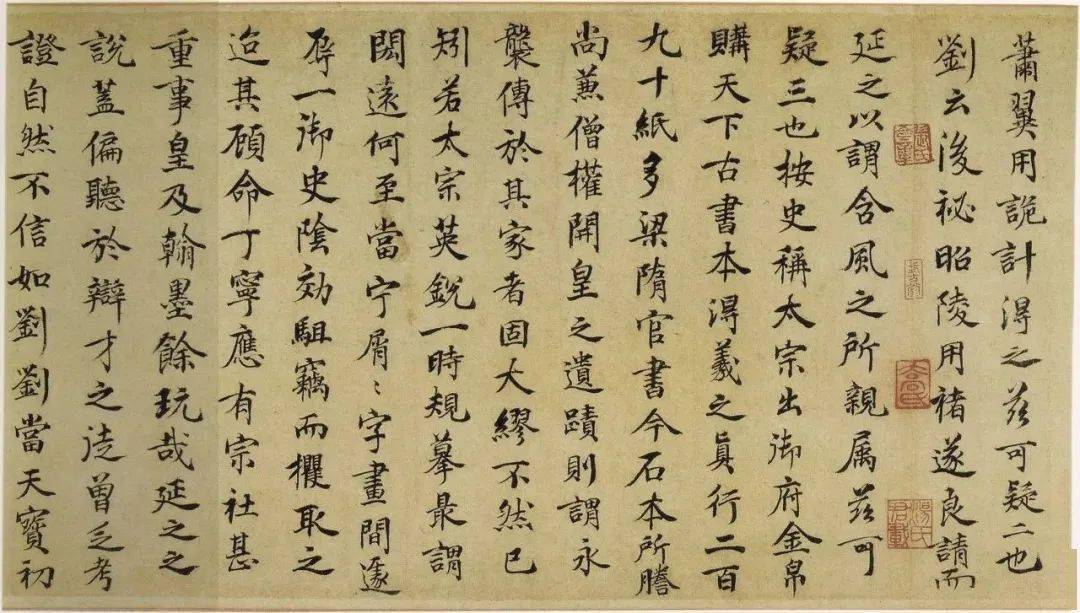 蕭翼用詭計得之茲可疑二也
劉云後祕昭陵用褚遂良請而
延之以謂含風之所親属茲可
疑三也按史稱太宗出御府金帛
購天下古書本得羲之真行二百
九十紙多梁隋官書今石本所謄
尚蕪僧權開皇之遺蹟則謂永
襲傳於其家者固大繆不然已
矧若太宗英銳一時規摹最謂
闊遠何至當宁屑〻字畫間遽
辱一御史陰効駔竊而攫取之
迨其顧命丁寧應有宗社甚
重事皇及翰墨餘玩哉延之之
說蓋偏聽於辯才之徒曾乏考
證自然不信如劉劉當天寶初